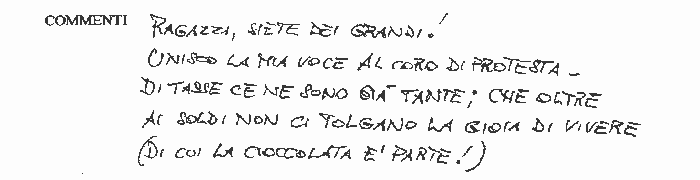 COMMENTI RAGAZZI, SIETE DEI GRANDI!
UNISCO LA MIA VOCE AL CORO DI PROTESTA -
DI TASSE CE NE SONO GIA' TANTE; CHE OLTRE
AI SOLDI NON CI TOLGANO LA GIOIA DI VIVERE
(DI CUI LA CIOCCOLATA E' PARTE!)